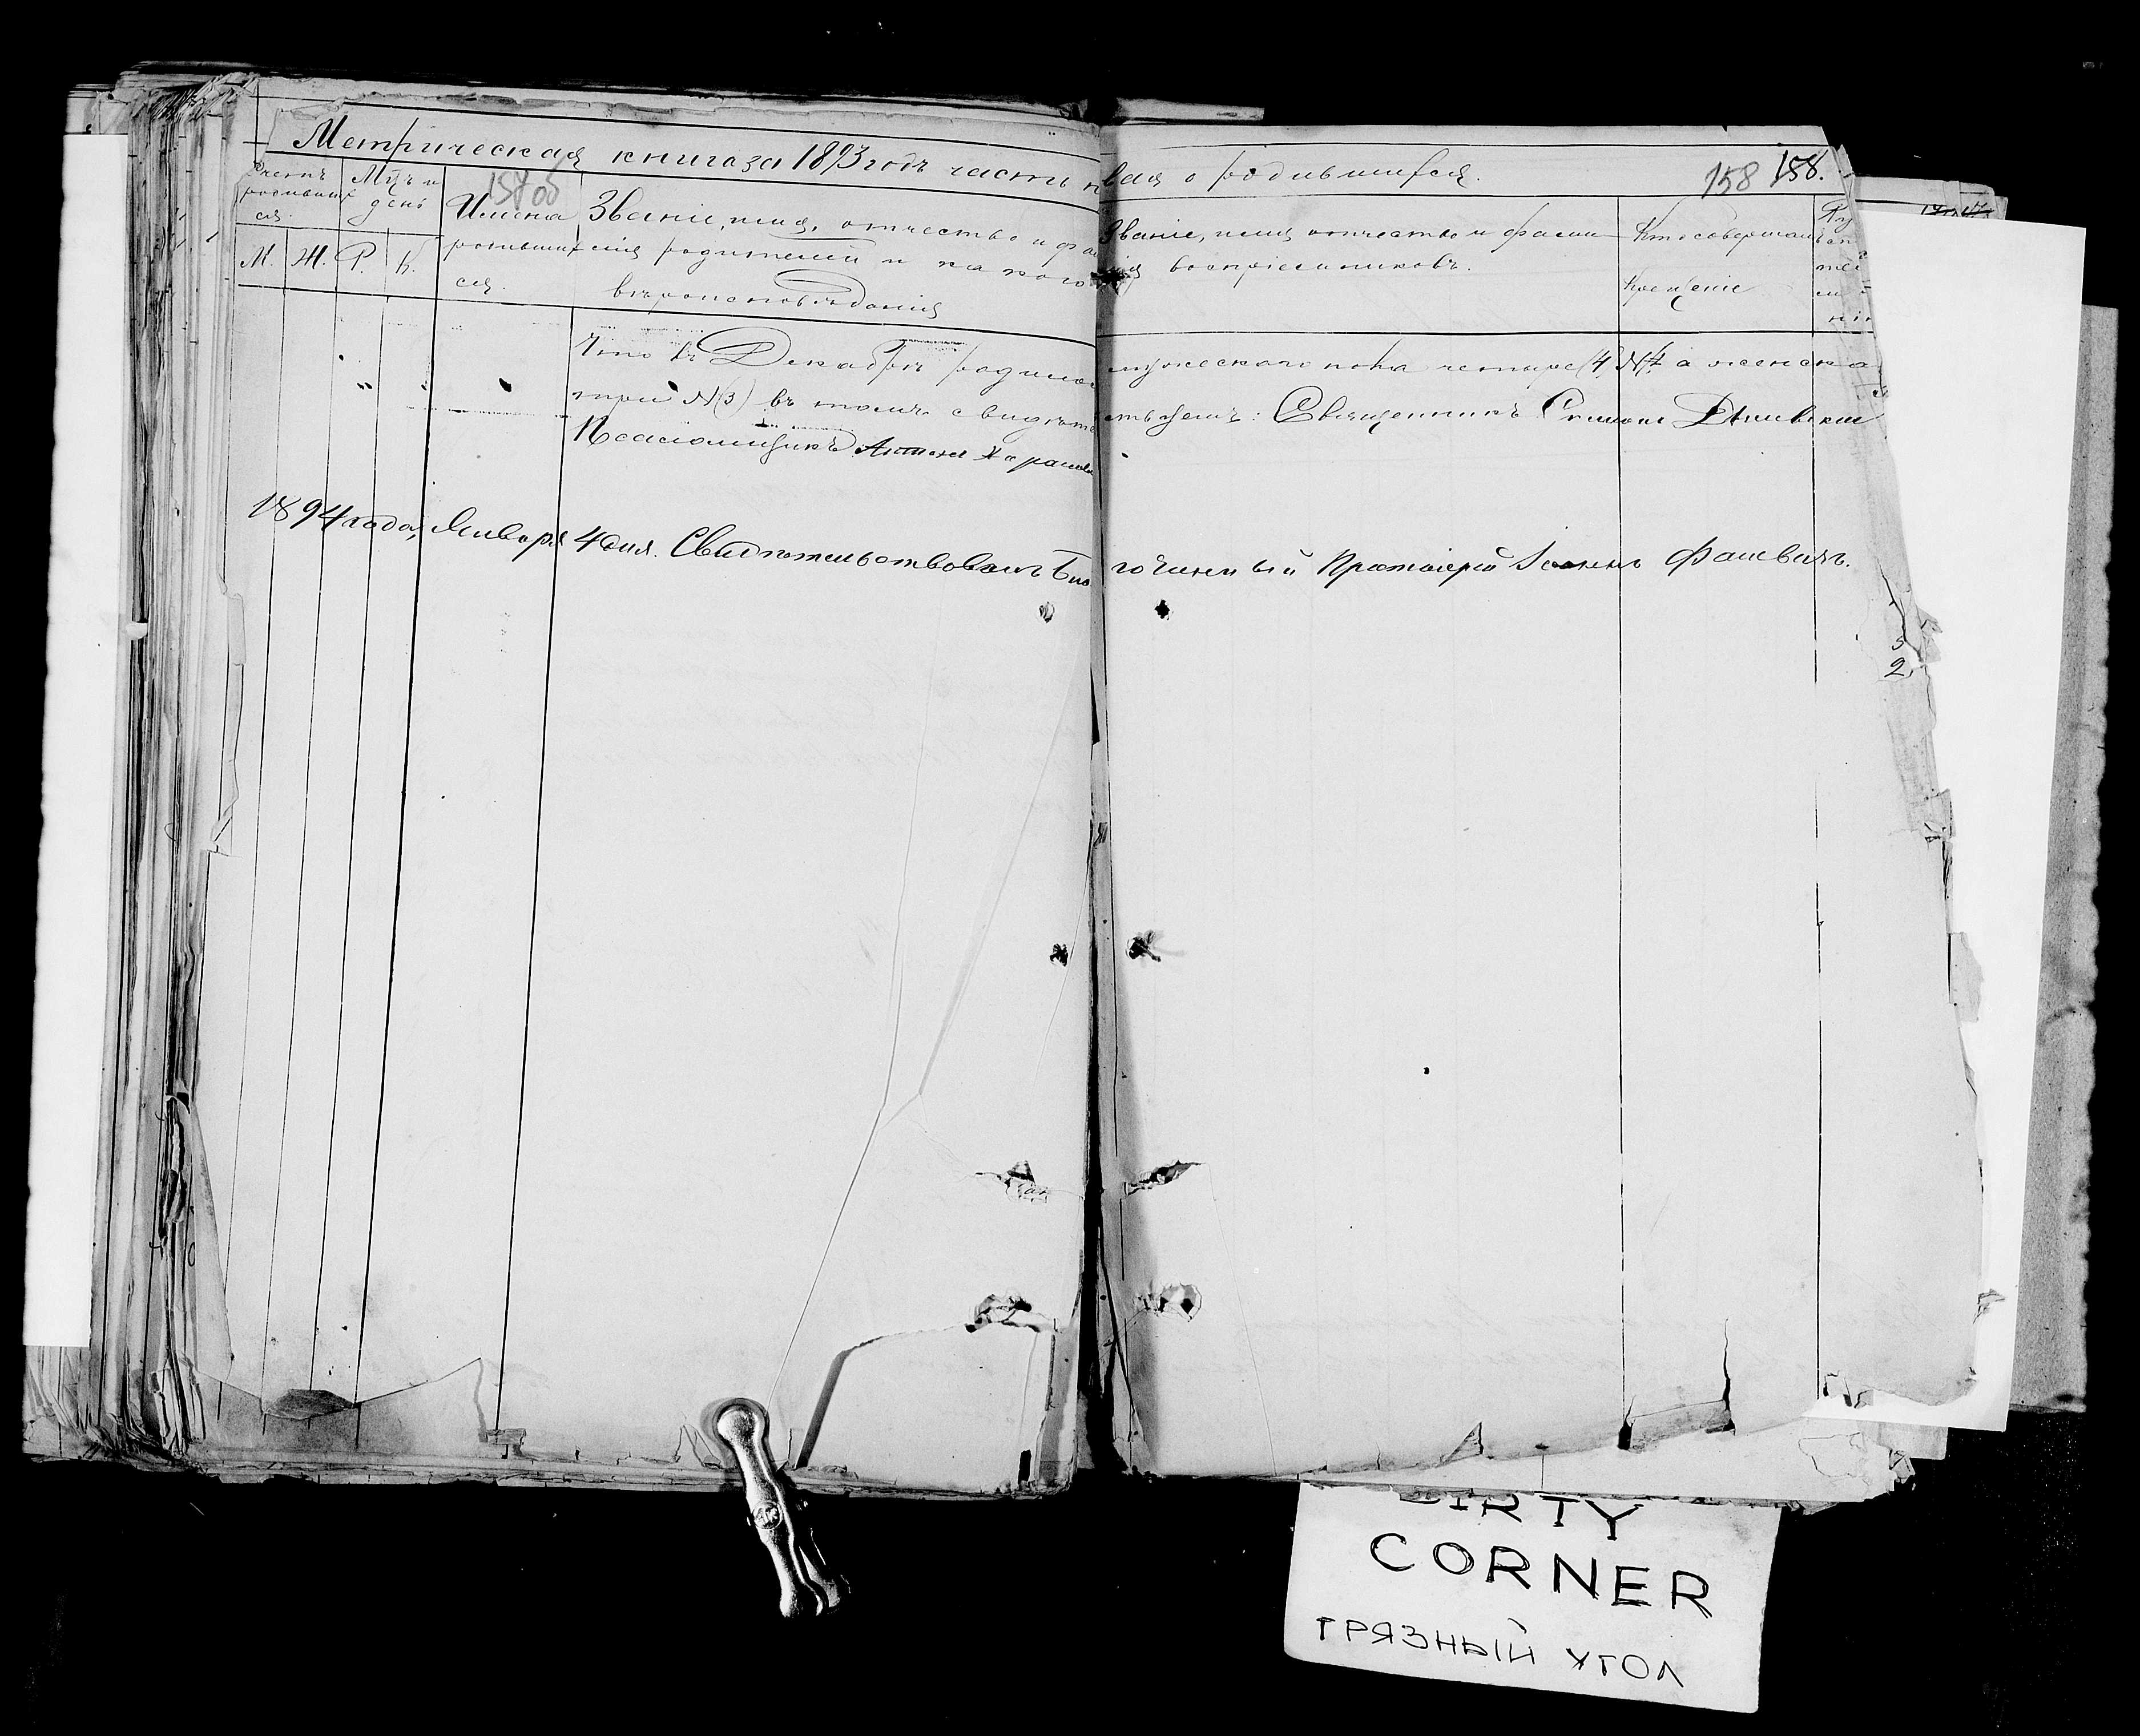 Метрическая книга за 1893 годъ часть п
вая о родившихся.
158 158.
157об
Счетъ родившихся
Мцъ и день
М. Ж. Р. К.
Имена родившихся
Званіе, имя, отчество и фа
милія родителей и какого
вѣроисповѣданія
Званіе, имя отчество и фами
лія воспріемниковъ.
Кто совершалъ
Крещеніе
Что въ Декабрѣ родилос
мужескаго пола четыре (4) № а женска
три №(3) въ томъ свидѣте
льствуемъ: Священникъ Симонъ
Псаломщикъ Антонъ
1894 года, Января 4 дня. Свидѣтельствовалъ Бла
гочинный Протоіерей Іоаннъ
2
DIRTY
CORNER
ГРЯЗНЫЙ УГОЛ